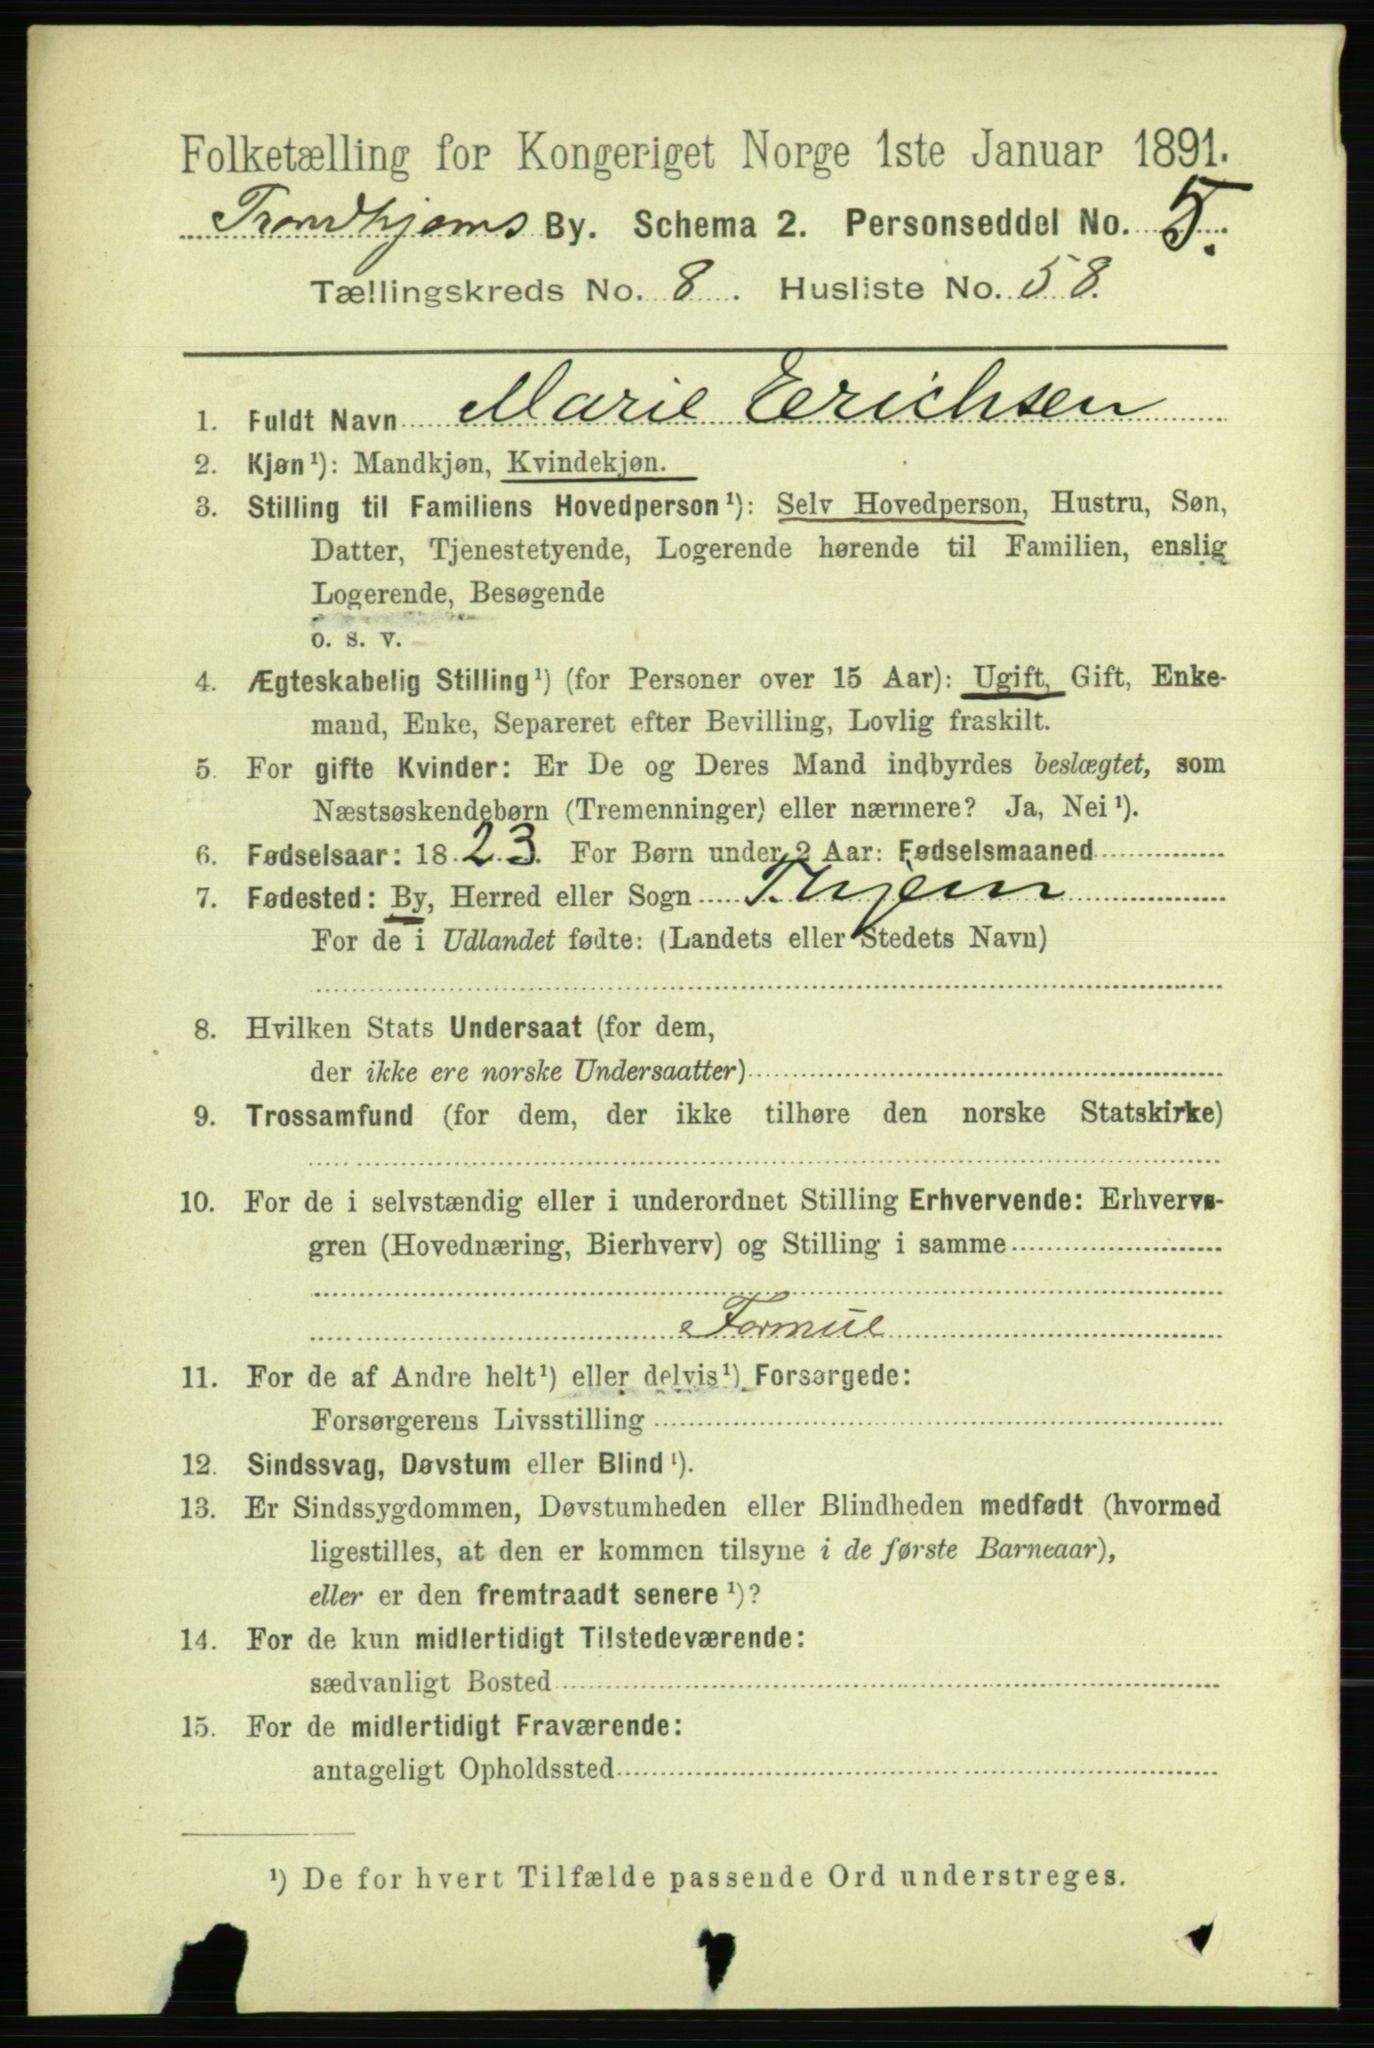 Folketælling for Kongeriget Norge 1ste Januar 1891.
Trondhjems By. Schema 2. Personseddel No. 5.
Tællingskreds No. 8. Husliste No. 58.
1. Fuldt Navn Marie Erichsen
2. Kjøn¹): Mandkjøn, Kvindekjøn.
3. Stilling til Familiens Hovedperson¹): Selv Hovedperson, Hustru, Søn,
Datter, Tjenestetyende, Logerende hørende til Familien, enslig
Logerende, Besøgende
o. s. v.
4. Ægteskabelig Stilling¹) (for Personer over 15 Aar): Ugift, Gift, Enke-
mand, Enke, Separeret efter Bevilling, Lovlig fraskilt.
5. For gifte Kvinder: Er De og Deres Mand indbyrdes beslægtet, som
Næstsøskendebørn (Tremenninger) eller nærmere? Ja, Nei¹).
6. Fødselsaar: 1823. For Børn under 2 Aar: Fødselsmaaned
7. Fødested: By, Herred eller Sogn Thjem
For de i Udlandet fødte: (Landets eller Stedets Navn)
8. Hvilken Stats Undersaat (for dem,
der ikke ere norske Undersaatter)
9. Trossamfund (for dem, der ikke tilhøre den norske Statskirke)
10. For de i selvstændig eller i underordnet Stilling Erhvervende: Erhvervs-
gren (Hovednæring, Bierhverv) og Stilling i samme
Formue
11. For de af Andre helt¹) eller delvis¹) Forsørgede:
Forsørgerens Livsstilling
12. Sindssvag, Døvstum eller Blind¹).
13. Er Sindssygdommen, Døvstumheden eller Blindheden medfødt (hvormed
ligestilles, at den er kommen tilsyne i de første Barneaar),
eller er den fremtraadt senere¹)?
14. For de kun midlertidigt Tilstedeværende:
sædvanligt Bosted
15. For de midlertidigt Fraværende:
antageligt Opholdssted
¹) De for hvert Tilfælde passende Ord understreges.